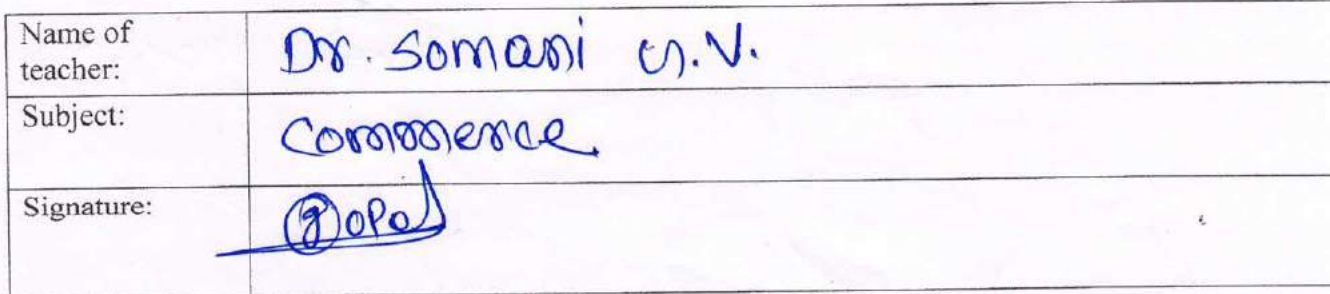 Name of
teacher:
Dr. Somani G.V.
Subject:
Commerce
Signature:
Gopal